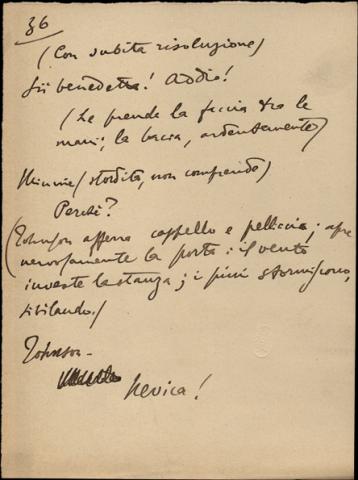 36
(Con subita risoluzione)
Sii benedetta! Addio!
(Le prende la faccia tra le
mani; la bacia, ardentemente)
Minnie (stordita, non comprende)
Perchè?
(Johnson afferra cappello e pelliccia; apre
nervosamente la porta: il vento
investe la stanza; i pini stormiscono,
sibilando.)
Johnson-
Nevica!